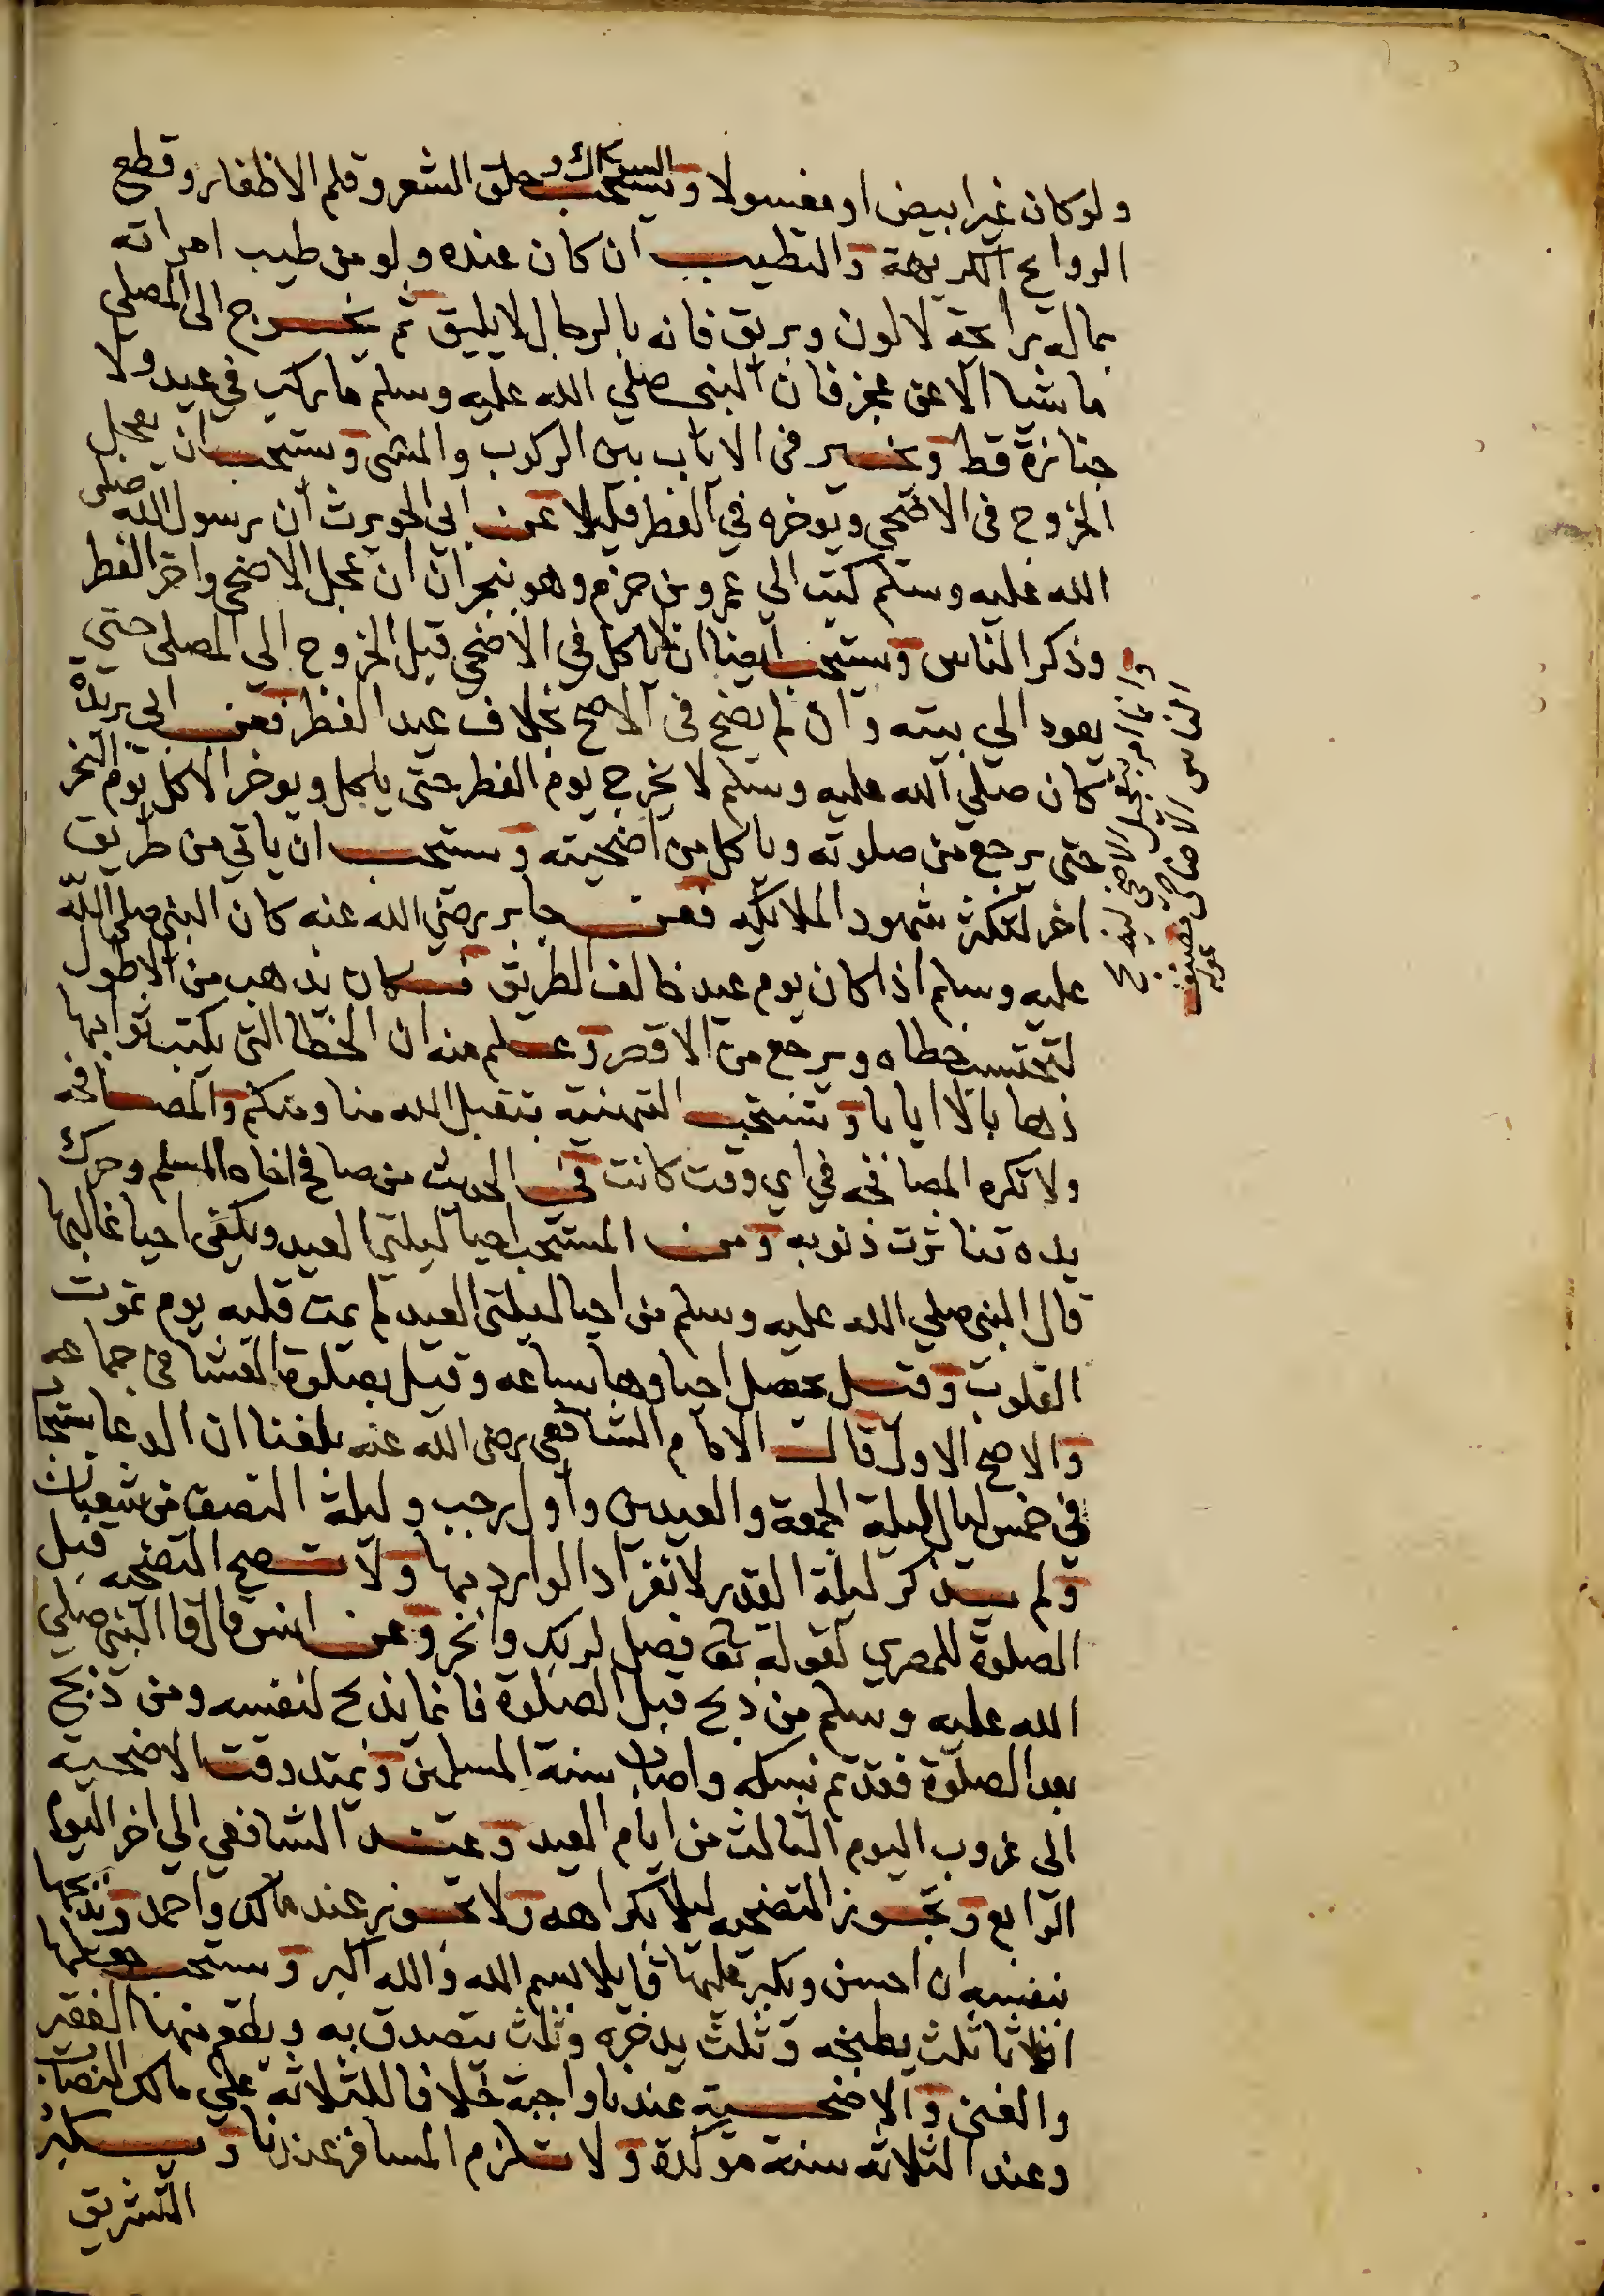 ولو كان غير ابيض او مغسولا ويستحب السواك و حلق الشعر وقلم الاظفار وقطع
الروايح الكريهة والتطيب ان كان عنده ولو من طيب امراته
بماله رايحة لا لون وبريق فانه بالرجال لا يليق ثم يخرج الى المصلى
ماشيا الا عن عجز فان النبى صلي الله عليه وسلم ما ركب في عيد ولا
جنازة قط ويخير فى الاياب بين الركوب والمشى ويستحب ان يعجل
الخروج فى الاضحى ويوخره في الفطر قليلا عن ابي الحويرث ان رسول الله صلى
الله عليه وسلم كتب الي عمرو بن حزم وهو بنجران ان عجل الاضحى واخر الفطر
وذكر الناس ويستحب ايضا ان لا ياكل في الاضحى قبل الخروج الي المصلى حتي
يعود الي بيته وان لم يضح فى الاصح بخلاف عيد الفطر فعن ابي بريدة
كان صلي الله عليه وسلم لا يخرج يوم الفطر حتى ياكل ويوخر الاكل يوم النحر
حتى يرجع من صلوته وياكل من اضحيته ويستحب ان ياتي من طريق
اخر لتكثر شهود الملائكه فعن جابر رضي الله عنه كان النبى صلى الله
عليه وسلم اذا كان يوم عيد خالف الطريق فكان يذهب من الاطول
لتحتسب خطاه ويرجع من الاقصر وعلم منه ان الخطا التى يكتب ثوابها
ذهابا لا ايابا وتستحب التهنيه بتقبل الله منا ومنكم والمصافحه
ولا تكره المصافحه في اي وقت كانت ففى الحديث من صافح اخاه المسلم وحرك
يده تناثرت ذنوبه ومن المستحب احيا ليلتى العيد ويكفى احيا غالبها
قال النبى صلي الله عليه وسلم من احيا ليلتى العيد لم يمت قلبه يوم تموت
القلوب وقيل يحصل احياوها بساعه وقيل بصلوة العشا فى جماعه
والاصح الاول قال الامام الشافعى رضى الله عنه بلغنا ان الدعا يستجاب
في خمس ليال ليلة الجمعة والعيدين واول رجب وليلة النصف من شعبان
ولم يذكر ليلة القدر لانفراد الوارد بها ولا تصح التضحيه قبل
الصلوة للمصري لقوله تعا فصل لربك وانحر وعن انس قال قال النبى صلي
الله عليه وسلم من ذبح قبل الصلوة فانما يذبح لنفسه ومن ذبح
بعد الصلوة فقد تم نسكه واصاب سنة المسلمين ويمتد وقت الاضحية
الى غروب اليوم الثالث من ايام العيد وعند الشافعي الي اخر اليوم
الرابع وتجوز التضحيه ليلا بكراهه ولا تجوز عند مالك واحمد ويذبحها
بنفسه ان احسن ويكبر عليها قايلا بسم الله والله اكبر ويستحب جعلها
اثلاثا ثلث يطبخه وثلث يدخره وثلث يتصدق به ويطعم منها الفقير
والغنى والاضحية عندنا واجبة خلافا للثلاثه علي مالك النصاب
وعند الثلاثه سنة موكدة ولا تلزم المسافر عندنا ويكبر
التشريق
وانما امر بتعجيل الاضحى
الناس الاضاحي